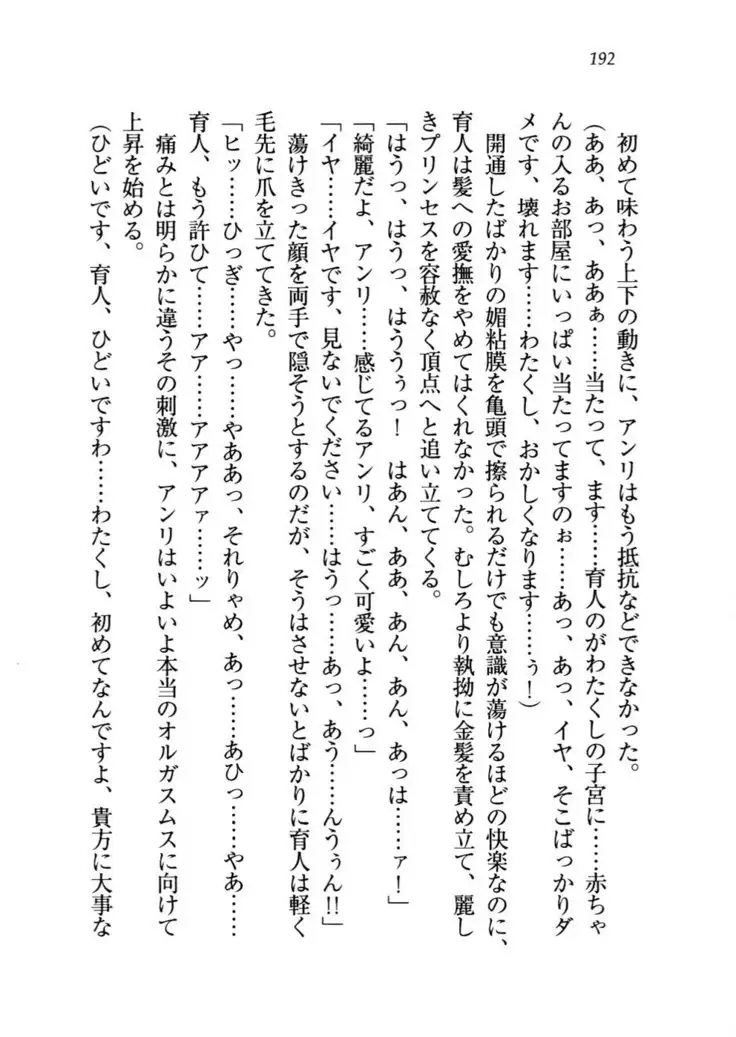 192
初めて味わう上下の動きに、アンリはもう抵抗などできなかった。
(ああ、あっ、ああぁ……当たって、ます……育人のがわたくしの子宮に……赤ちゃ
んの入るお部屋にいっぱい当たってますのぉ……あっ、あっ、イヤ、そこばっかりダ
メです、壊れます……わたくし、おかしくなります……ぅ!)
開通したばかりの媚粘膜を亀頭で擦られるだけでも意識が蕩けるほどの快楽なのに、
育人は髪への愛撫をやめてはくれなかった。むしろより執拗に金髪を責め立て、麗し
きプリンセスを容赦なく頂点へと追い立ててくる。
「はうっ、はうっ、はううぅっ! はあん、ああ、あん、あん、あっは……ァ!」
「綺麗だよ、アンリ……感じてるアンリ、すごく可愛いよ……っ」
「イヤ……イヤです、見ないでください……はうっ……あっ、あう……んうぅん!!」
蕩けきった顔を両手で隠そうとするのだが、そうはさせないとばかりに育人は軽く
毛先に爪を立ててきた。
「ヒッ……ひっぎ……やっ……やああっ、それりゃめ、あっ……あひっ……やあ……
育人、もう許ひて……アア……アアアアァ……ッ」
痛みとは明らかに違うその刺激に、アンリはいよいよ本当のオルガスムスに向けて
上昇を始める。
(ひどいです、育人、ひどいですわ……わたくし、初めてなんですよ、貴方に大事な